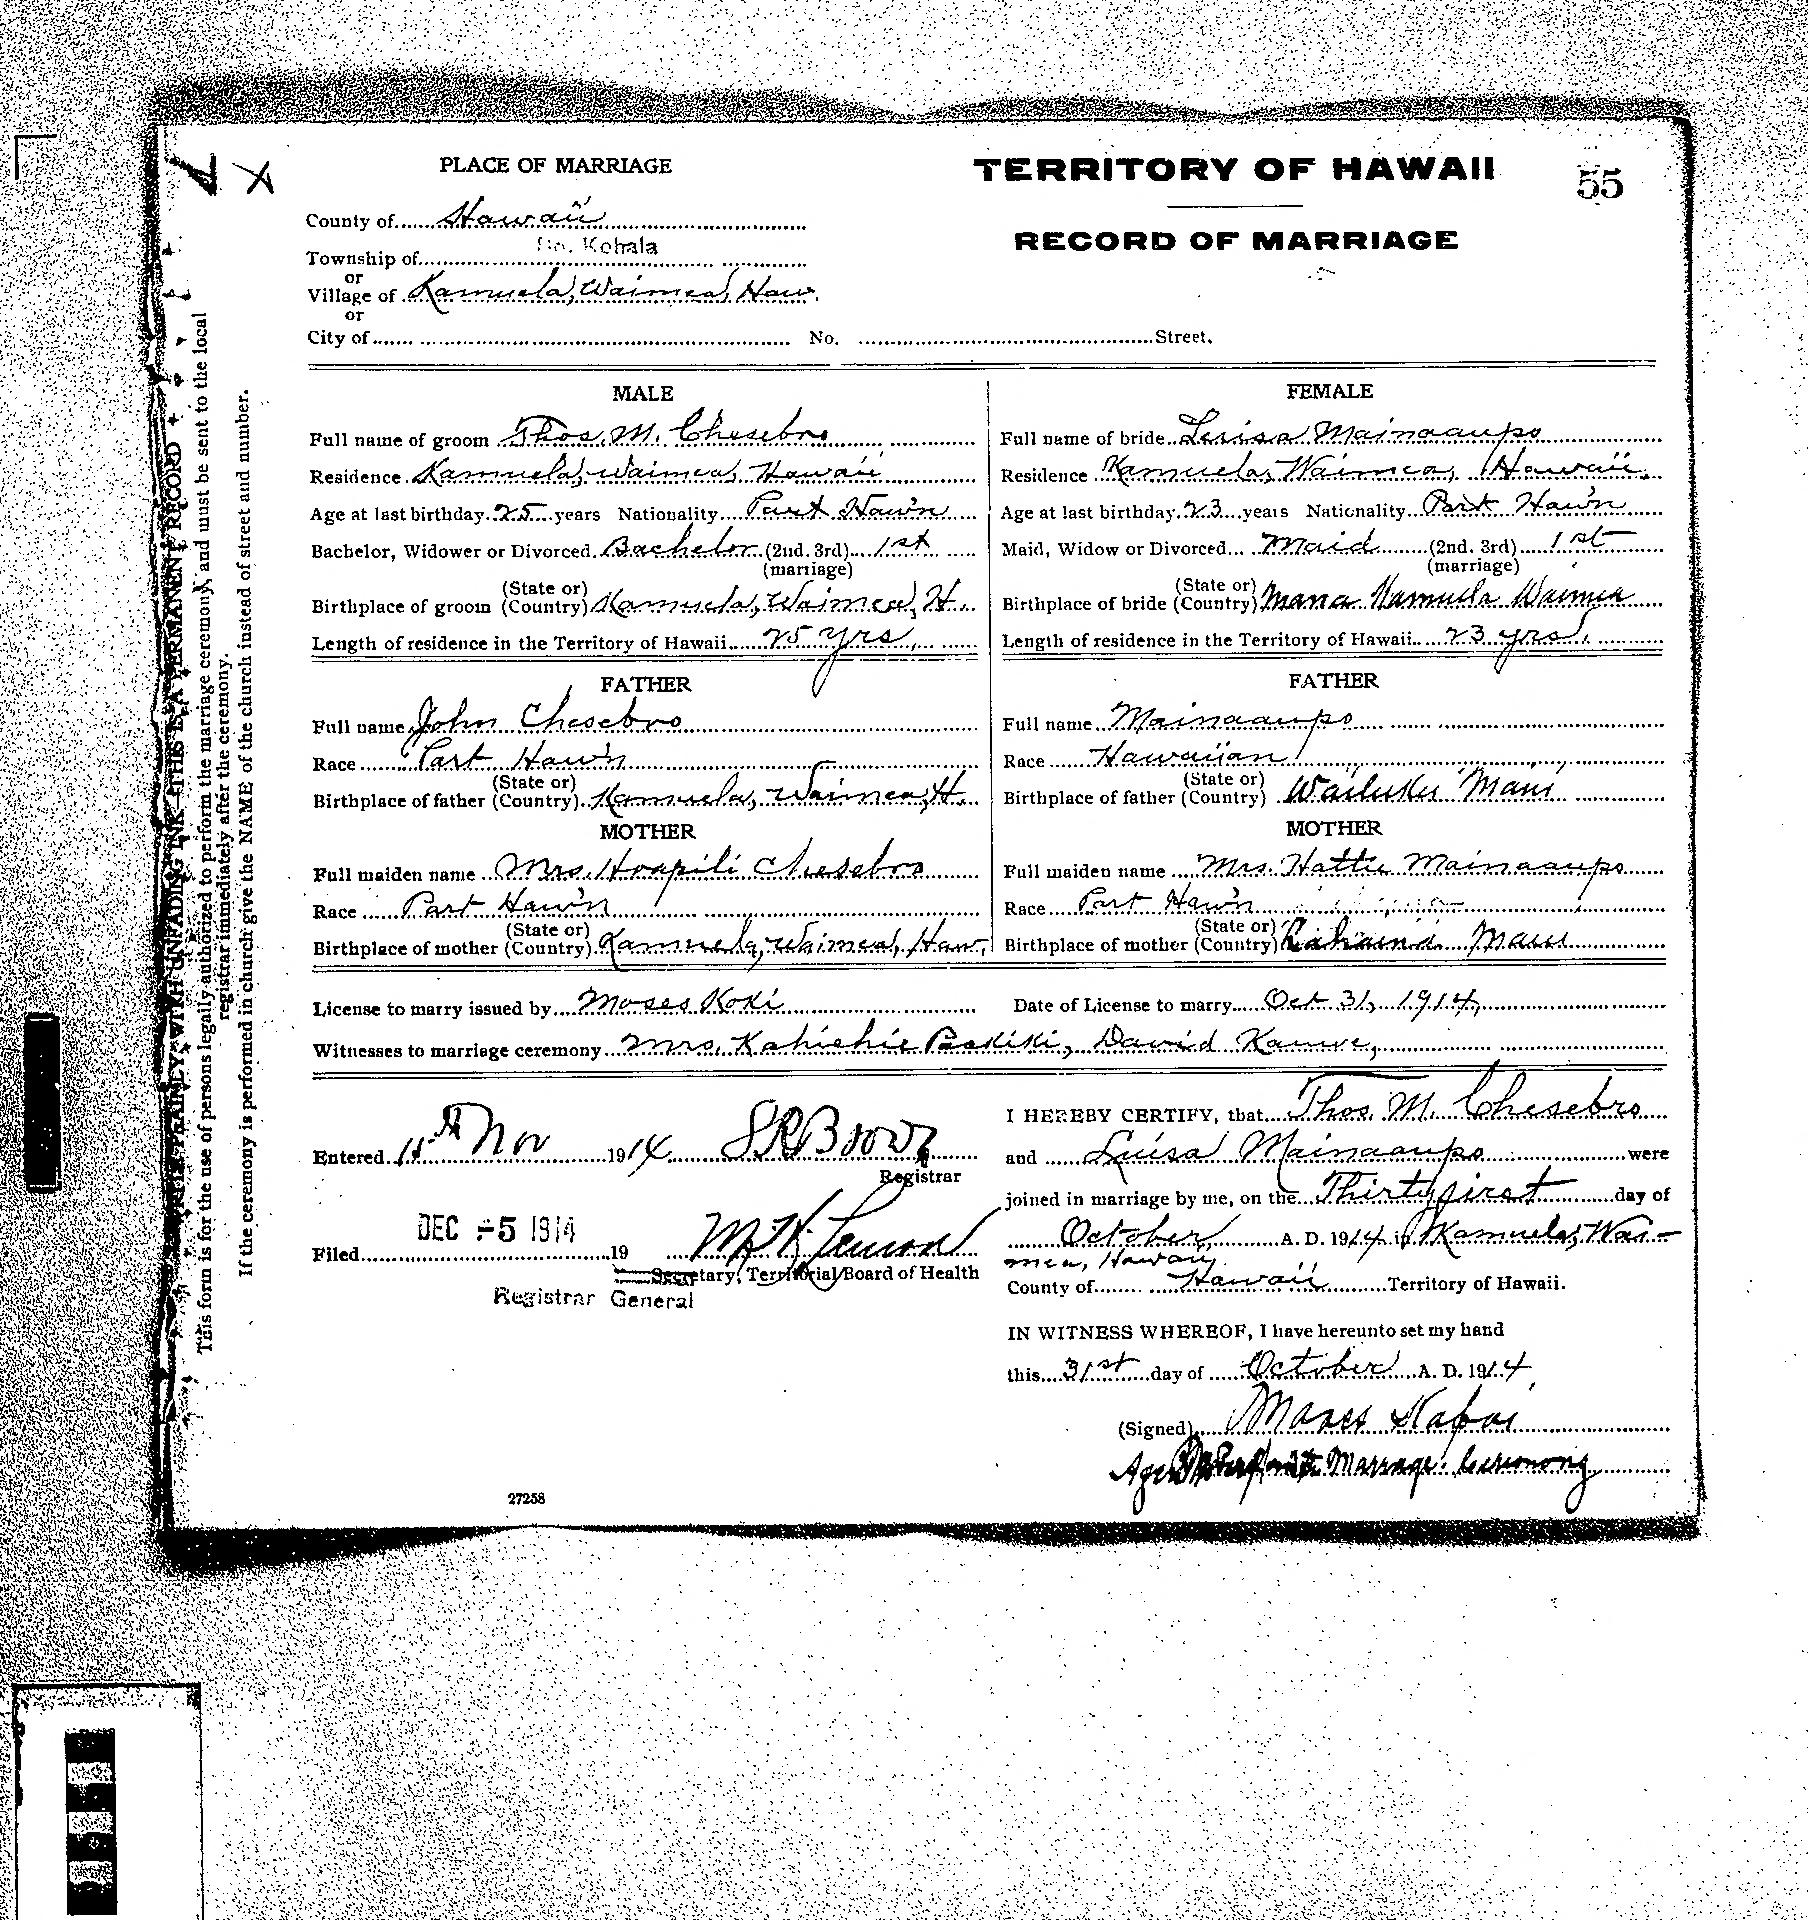 PLACE OF MARRIAGE
TERRITORY OF HAWAII
55
County of Hawaii
RECORD OF MARRIAGE
Township of So. Kohala
or
Village of Kamuela, Waimea, Haw.
or
City of No. Street.
MALE
Full name of groom Thos. M. Chesebro
Residence Kamuela, Waimea, Hawaii
Age at last birthday 25 years Nationality Part Haw'n
Bachelor, Widower or Divorced Bachelor (2nd. 3rd) 1st
(marriage)
(State or)
Birthplace of groom (Country) Kamuela, Waimea, H.
Length of residence in the Territory of Hawaii 25 yrs.
FATHER
Full name John Chesebro
Race Part Haw'n
(State or)
Birthplace of father (Country) Kamuela, Waimea, H.
MOTHER
Full maiden name Mrs. Hoapili Chesebro
Race Part Haw'n
(State or)
Birthplace of mother (Country) Kamuela, Waimea, Haw.
FEMALE
Full name of bride Luisa Mainaaupo
Residence Kamuela, Waimea, Hawaii.
Age at last birthday 23 years Nationality Part Haw'n
Maid, Widow or Divorced Maid (2nd. 3rd) 1st
(marriage)
(State or)
Birthplace of bride (Country) Mana Kamuela Waimea
Length of residence in the Territory of Hawaii 23 yrs.
FATHER
Full name Mainaaupo
Race Hawaiian
(State or)
Birthplace of father (Country) Wailuku Maui
MOTHER
Full maiden name Mrs. Hattie Mainaaupo
Race Part Haw'n
(State or)
Birthplace of mother (Country) Lahaina Maui
License to marry issued by Moses Koki Date of License to marry Oct 31, 1914,
Witnesses to marriage ceremony Mrs. Kahiehie Paakiki, David Kamoe,
Entered Nov 1914
Registrar
Filed DEC -5 1914 19
Secretary, Territorial Board of Health
Registrar General
27258
I HEREBY CERTIFY, that Thos. M. Chesebro
and Luisa Mainaaupo were
joined in marriage by me, on the Thirty first day of
October A. D. 1914 in Kamuela, Wai-
mea, Hawaii,
County of Hawaii Territory of Hawaii.
IN WITNESS WHEREOF, I have hereunto set my hand
this 31st day of October A. D. 1914
(Signed) Moses
Marriage Ceremony
WRITE PLAINLY WITH UNFADING INK—THIS IS A PERMANENT RECORD
This form is for the use of persons legally authorized to perform the marriage ceremony, and must be sent to the local
registrar immediately after the ceremony.
If the ceremony is performed in church give the NAME of the church instead of street and number.